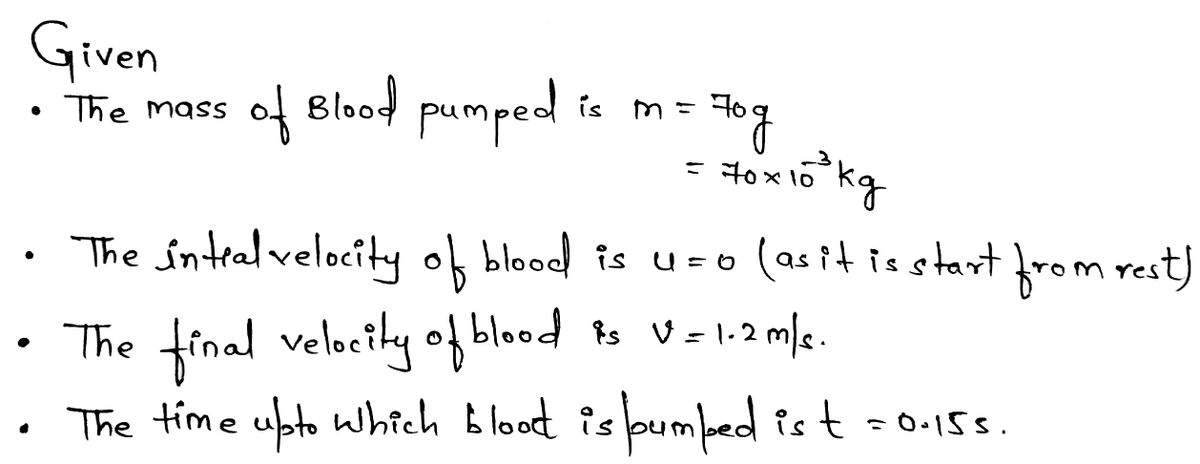 Given
• The mass of Blood pumped is m = 70g
= 70×10⁻³kg
• The inteal velocity of blood is u=0 (as it is start from rest)
• The final velocity of blood is v = 1.2 m/s.
• The time upto which blood is pumped is t = 0.15s.